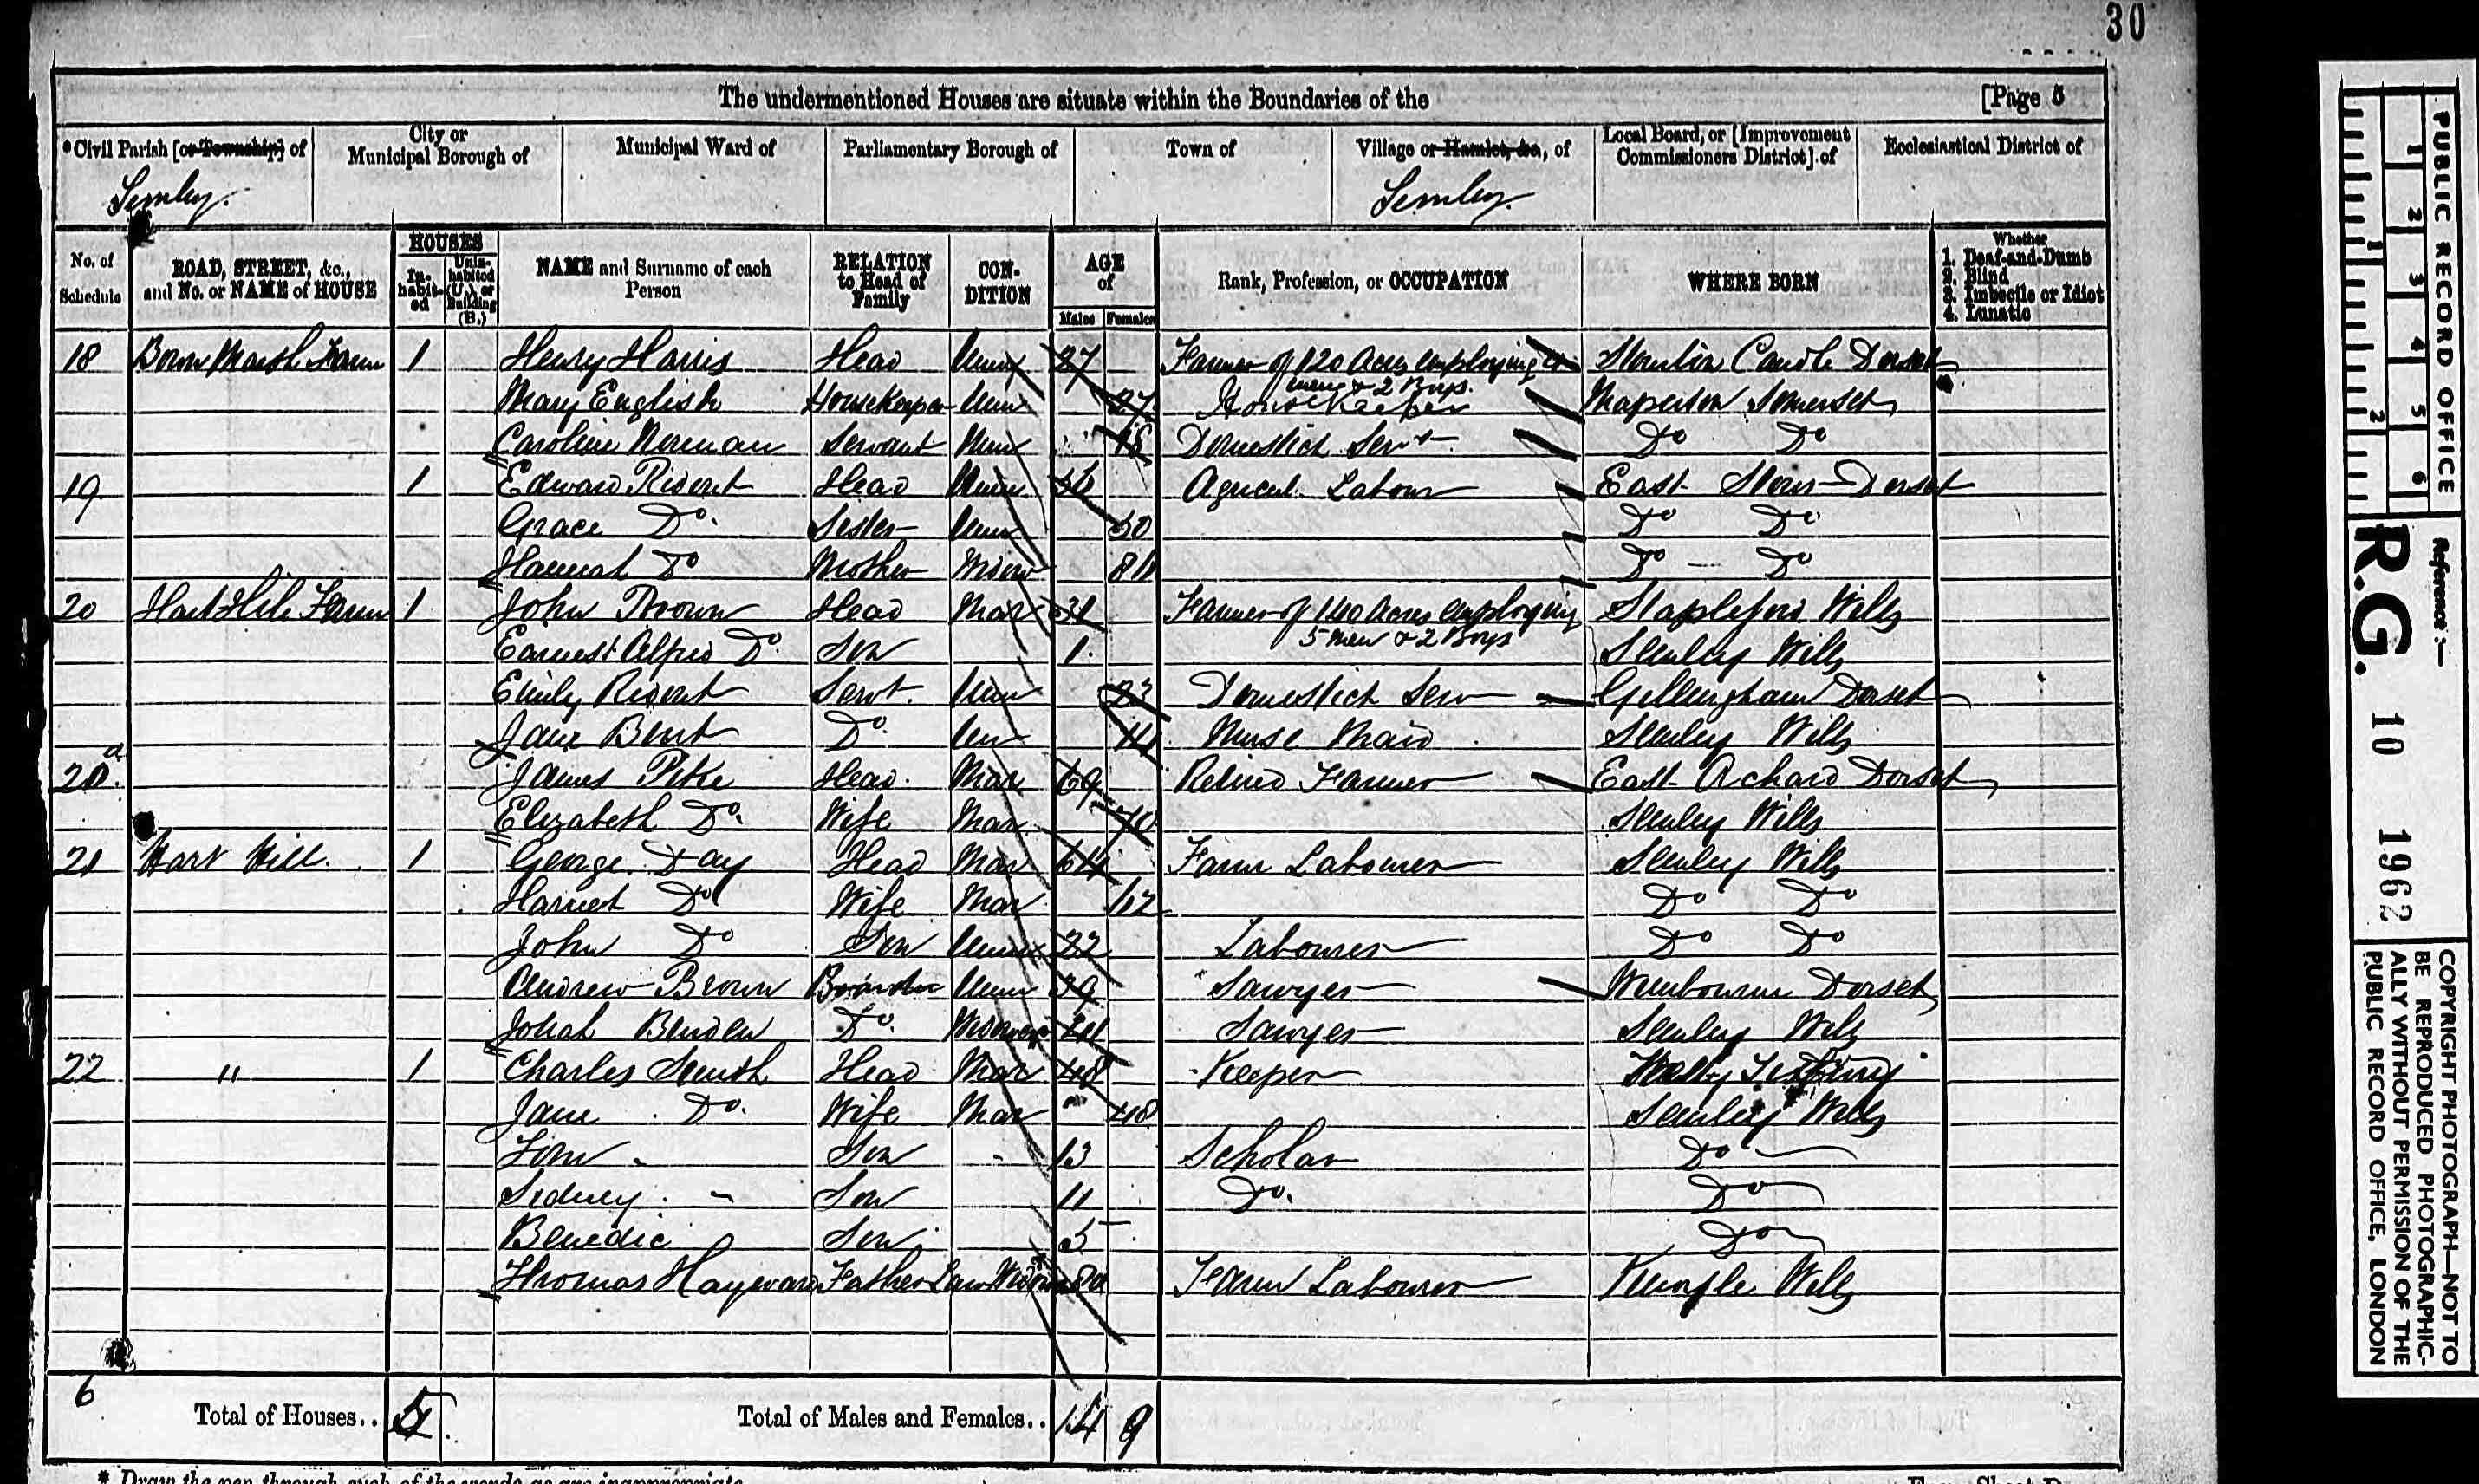 30
The undermentioned Houses are situate within the Boundaries of the [Page 5
*Civil Parish [or Township] of
City or Municipal Borough of
Municipal Ward of
Parliamentary Borough of
Town of
Village or Hamlet, &c., of
Local Board, or [Improvement Commissioners District] of
Ecclesiastical District of
Semley. Semley.
No. of Schedule
ROAD, STREET, &c., and No. or NAME of HOUSE
HOUSES
In-habit-ed
Unin-habited (U.), or Building (B.)
NAME and Surname of each Person
RELATION to Head of Family
CON-DITION
AGE of
Males Females
Rank, Profession, or OCCUPATION
WHERE BORN
Whether
1. Deaf-and-Dumb
2. Blind
3. Imbecile or Idiot
4. Lunatic
18 Marsh Farm 1 Henry Harris Head Unm 27 Farmer of 120 Acres employing Caundle Dorset
men & 2 Boys.
Mary English Housekeeper Unm 27 Housekeeper Maperton Somerset
Caroline Norman Servant Unm 18 Domestick Servt Do Do
19 1 Edward Rideout Head Unm Agricul. Labour East Stour Dorset
Grace Do. Sister Unm 50 Do Do
Hannah Do Mother Widow Do Do
20 Hart Hill Farm 1 John Brown Head Mar 31 Farmer of 140 Acres employing Stapleford Wilts
5 men & 2 Boys
Earnest Alfred Do Son 1 Semley Wilts
Emily Rideout Servt. Unm 23 Domestick Serv Gillingham Dorset
Jane Do. Un 14 Nurse Maid Semley Wilts
20a. James Pike Head. Mar 69 Retired Farmer East Orchard Dorset
Elizabeth Do. Wife Mar 70 Semley Wilts
21 Hart Hill. 1 George Day Head Mar 64 Farm Labourer Semley Wilts
Harriet Do Wife Mar Do Do
John Do Son Unm 22 Labourer Do Do
Andrew Brown Boarder Unm 39 Sawyer Dorset
Josiah Do. Widower Sawyer Semley Wilts
22 " 1 Charles Smith Head Mar 48 Keeper
Jane Do. Wife Mar 48 Semley Wilts
Tom Son 13 Scholar Do
Sidney Son 11 Do. Do
Benedic Son 5 Do
Thomas Hayward Father Law Widower 80 Farm Labourer Wilts
6
Total of Houses.. 5
Total of Males and Females.. 14 9
* Draw the pen through such of the words as are inappropriate.
PUBLIC RECORD OFFICE
1 2 3 4 5 6
1 2
Reference:—
R.G. 10 1962
COPYRIGHT PHOTOGRAPH—NOT TO
BE REPRODUCED PHOTOGRAPHIC-
ALLY WITHOUT PERMISSION OF THE
PUBLIC RECORD OFFICE, LONDON